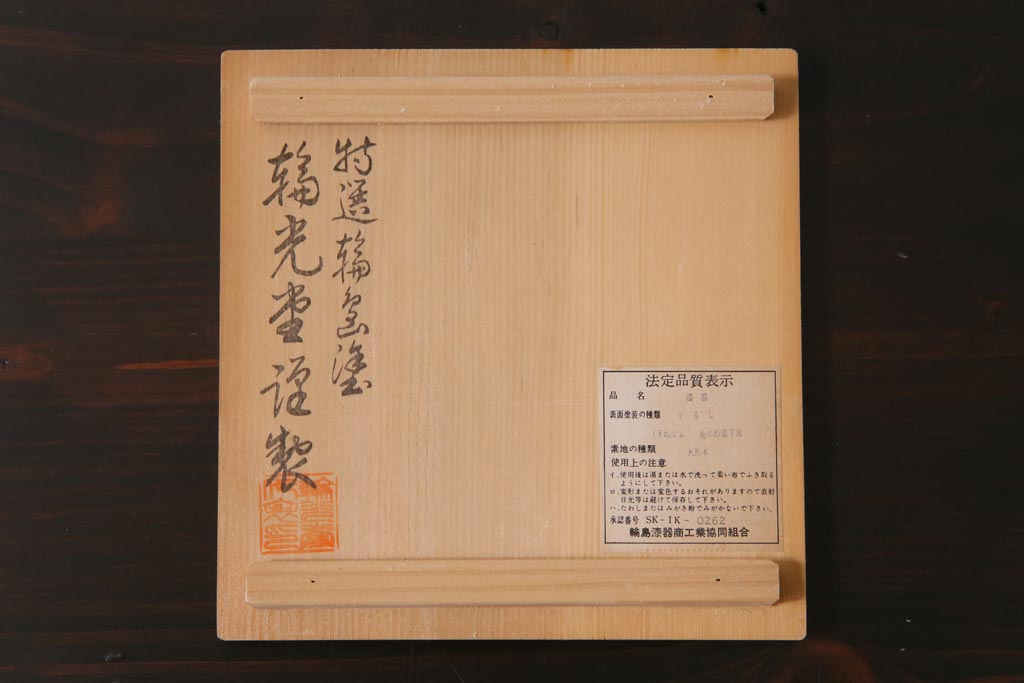 特選輪島塗
輪光堂謹製
法定品質表示
品名 漆器
表面塗装の種類 うるし
(下地塗装 地の粉漆下地
素地の種類 天然木
使用上の注意
イ.使用後は湯または水で洗って柔い布でふき取る
ようにして下さい。
ロ.変形または変色するおそれがありますので直射
日光等は避けて保存して下さい。
ハ.たわしまたはみがき粉でみがかないで下さい。
承認番号 SK-IK-0262
輪島漆器商工業協同組合